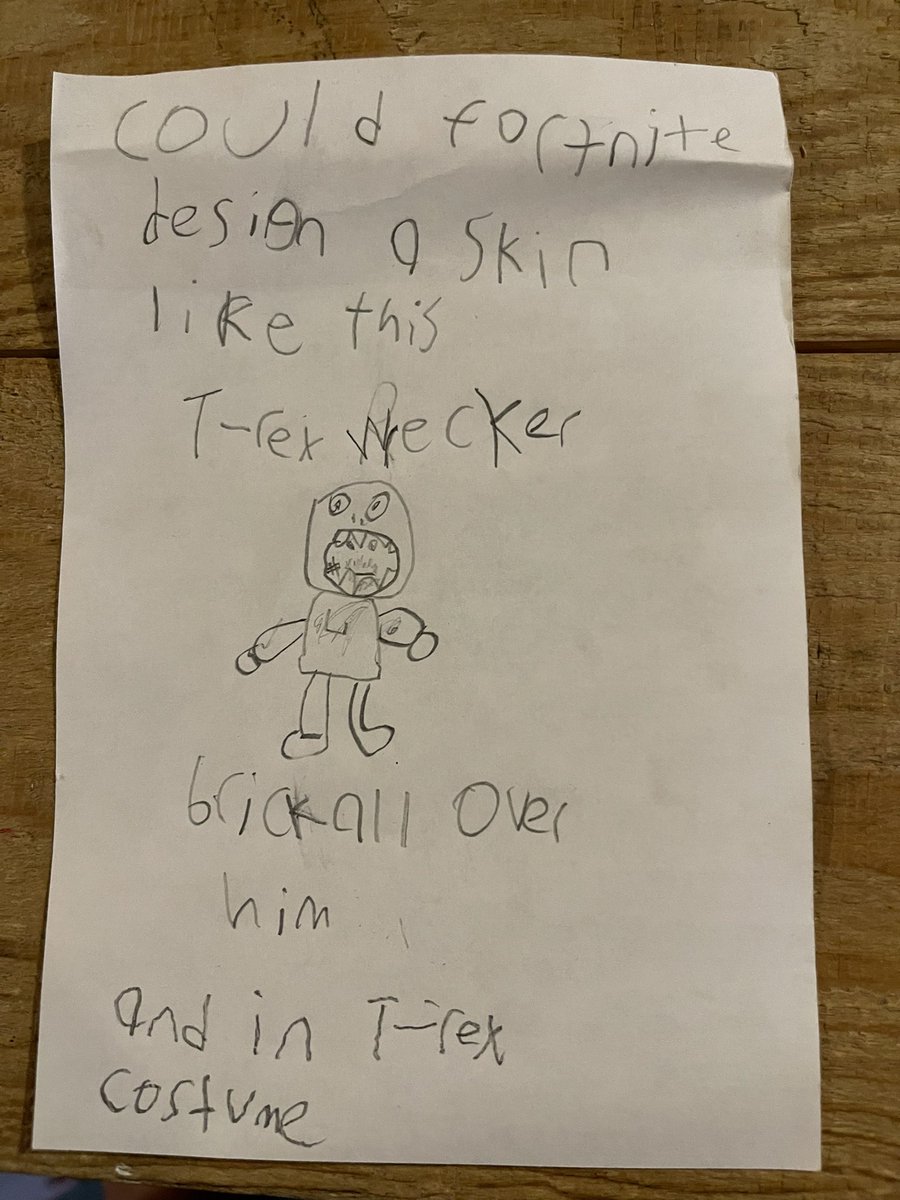 could fortnite
design a skin
like this
T-rex Wrecker
brick all over
him
and in T-rex
costume